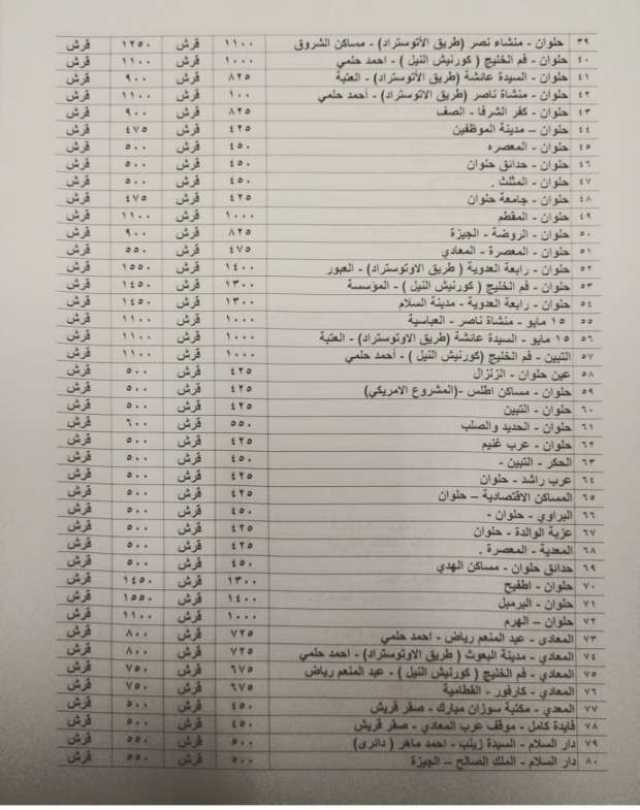 ٣٩ حلوان - منشاء نصر (طريق الأتوستراد) - مساكن الشروق ١١٠٠ قرش ١٢٥٠ قرش
٤٠ حلوان - فم الخليج ( كورنيش النيل ) - احمد حلمي ١٠٠٠ قرش ١١٠٠ قرش
٤١ حلوان - السيدة عائشة (طريق الأتوستراد) - العتبة ٨٢٥ قرش ٩٠٠ قرش
٤٢ حلوان - منشاة ناصر (طريق الاتوستراد) - أحمد حلمي ١٠٠٠ قرش ١١٠٠ قرش
٤٣ حلوان - كفر الشرفا - الصف ٨٢٥ قرش ٩٠٠ قرش
٤٤ حلوان – مدينة الموظفين ٤٢٥ قرش ٤٧٥ قرش
٤٥ حلوان - المعصره ٤٥٠ قرش ٥٠٠ قرش
٤٦ حلوان - حدائق حلوان ٤٥٠ قرش ٥٠٠ قرش
٤٧ حلوان - المثلث . ٤٥٠ قرش ٥٠٠ قرش
٤٨ حلوان - جامعة حلوان ٤٢٥ قرش ٤٧٥ قرش
٤٩ حلوان - المقطم ١٠٠٠ قرش ١١٠٠ قرش
٥٠ حلوان - الروضة - الجيزة ٨٢٥ قرش ٩٠٠ قرش
٥١ حلوان - المعصرة - المعادي ٤٧٥ قرش ٥٥٠ قرش
٥٢ حلوان - رابعة العدوية ( طريق الاوتوستراد) - العبور ١٤٠٠ قرش ١٥٥٠ قرش
٥٣ حلوان - فم الخليج ( كورنيش النيل ) - المؤسسة ١٣٠٠ قرش ١٤٥٠ قرش
٥٤ حلوان - رابعة العدوية - مدينة السلام ١٣٠٠ قرش ١٤٥٠ قرش
٥٥ ١٥ مايو - منشاة ناصر - العباسية ١٠٠٠ قرش ١١٠٠ قرش
٥٦ ١٥ مايو - السيدة عائشة (طريق الاوتوستراد) - العتبة ١٠٠٠ قرش ١١٠٠ قرش
٥٧ التبين - فم الخليج (كورنيش النيل ) - أحمد حلمي ١٠٠٠ قرش ١١٠٠ قرش
٥٨ عين حلوان - الزلزال ٤٢٥ قرش ٥٠٠ قرش
٥٩ حلوان - مساكن اطلس -(المشروع الامريكي) ٤٢٥ قرش ٥٠٠ قرش
٦٠ حلوان - التبين ٤٢٥ قرش ٥٠٠ قرش
٦١ حلوان - الحديد والصلب ٥٥٠ قرش ٦٠٠ قرش
٦٢ حلوان - عرب غنيم ٤٢٥ قرش ٥٠٠ قرش
٦٣ الحكر - التبين - ٤٥٠ قرش ٥٠٠ قرش
٦٤ عرب راشد - حلوان ٤٢٥ قرش ٥٠٠ قرش
٦٥ المساكن الاقتصادية – حلوان ٤٢٥ قرش ٥٠٠ قرش
٦٦ البراوي - حلوان - ٤٥٠ قرش ٥٠٠ قرش
٦٧ عزبة الوالدة - حلوان ٤٢٥ قرش ٥٠٠ قرش
٦٨ المعدية - المعصرة . ٤٢٥ قرش ٥٠٠ قرش
٦٩ حدائق حلوان - مساكن الهدي ٤٥٠ قرش ٥٠٠ قرش
٧٠ حلوان - اطفيح ١٣٠٠ قرش ١٤٥٠ قرش
٧١ حلوان - البرميل ١٤٠٠ قرش ١٥٥٠ قرش
٧٢ حلوان – الهرم ١٠٠٠ قرش ١١٠٠ قرش
٧٣ المعادى - عبد المنعم رياض - احمد حلمي ٧٢٥ قرش ٨٠٠ قرش
٧٤ المعادي - مدينة البعوث ( طريق الاوتوستراد) - احمد حلمي ٧٢٥ قرش ٨٠٠ قرش
٧٥ المعادي - فم الخليج ( كورنيش النيل ) - عبد المنعم رياض ٦٧٥ قرش ٧٥٠ قرش
٧٦ المعادي - كارفور - القطامية ٦٧٥ قرش ٧٥٠ قرش
٧٧ المعدي - مكتبة سوزان مبارك - صقر قريش ٤٥٠ قرش ٥٠٠ قرش
٧٨ فايدة كامل - موقف عرب المعادي - صقر قريش ٤٥٠ قرش ٥٠٠ قرش
٧٩ دار السلام - السيدة زينب - احمد ماهر ( دائرى) ٥٠٠ قرش ٥٥٠ قرش
٨٠ دار السلام - الملك الصالح – الجيزة ٥٠٠ قرش ٥٥٠ قرش